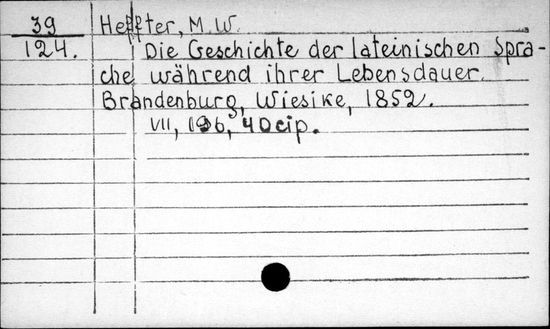 39 Heffter, M. W.
124. Die Geschichte der lateinischen Spra-
che während ihrer Lebensdauer.
Brandenburg, Wiesike, 1852.
VII, 196, 4 0 cip.